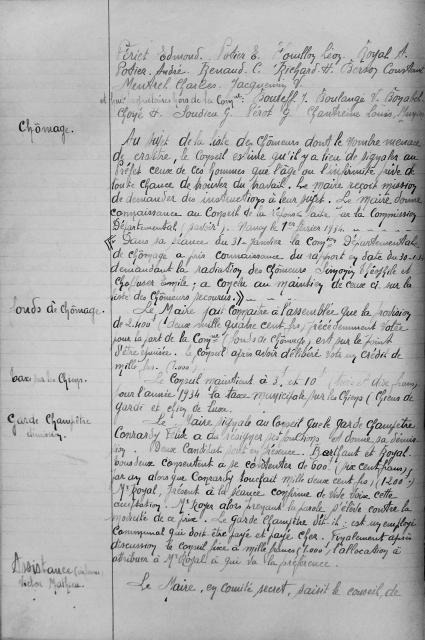 Périet Edmond. Potier E. Fouillon Léon. Royal A.
Potier André. Renaud C. Richard H. Constant
Mentrel Charles. Jacquemin V.
Boulangé V.
H. Soudieu G. Pérot G. Chantreine Louis,
Chômage.
Au sujet de la liste des chômeurs dont le nombre menace
de croître, le Conseil estime qu'il y a lieu de signaler au
Préfet ceux de ces hommes que l'âge ou l'infirmité prive de
toute chance de trouver du travail. Le maire reçoit mission
de demander des instructions à leur sujet. Le maire donne
connaissance au Conseil de la réponse faite par la Commission
Départemental Nancy le 1er février 1934.
« Dans sa séance du 31 Janvier la Comon Départementale
de chômage a pris connaissance du rapport en date du 30-1-34
demandant la radiation des chômeurs Simonin Théophile et
Emile ; a conclu au maintien de ceux-ci sur la
liste de chômeurs secourus. »
Fonds de chômage.
Le Maire fait connaître à l'assemblée que la provision
de 2.400f (deux mille quatre cent frs, précédemment votée
pour la part de la Comne (fonds de chômage), est sur le point
d'être épuisée. Le Conseil après avoir délibéré vote un crédit de
mille frs.
Taxe sur les chiens.
Le Conseil maintient à 3f et 10f (trois et dix francs)
pour l'année 1934 la taxe municipale sur les chiens (chiens de
garde et chien de luxe.
Garde Champêtre
démission.
Le Maire signale au Conseil que le garde champêtre
Conrardy a dû résigner ses fonctions et donne sa démis-
sion. Deux candidats sont en présence. et Royal.
tous deux consentent à se contenter de 600f (six cent francs)
par an alors que Conrardy touchait mille deux cent frs, (1200f)
Mr Royal, présent à la séance confirme de vive voix cette
acceptation. Mr Royer alors prenant la parole s'élève contre la
modicité de ce prix. Le garde champêtre dit-il : est un employé
communal qui doit être payé et payé cher. Finalement après
discussion le Conseil fixe à mille francs (1.000f) l'allocation à
attribuer à Mr Royal à qui va la préférence.
Assistance
Victor Mathieu
Le Maire, en comité secret, saisit le conseil, de